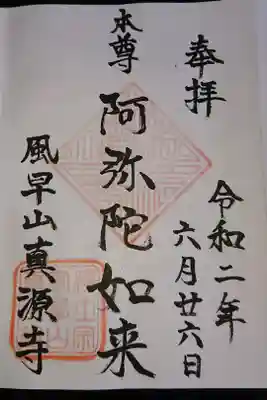 奉拝
令和二年
六月廿六日
本尊
阿弥陀如来
風早山真源寺